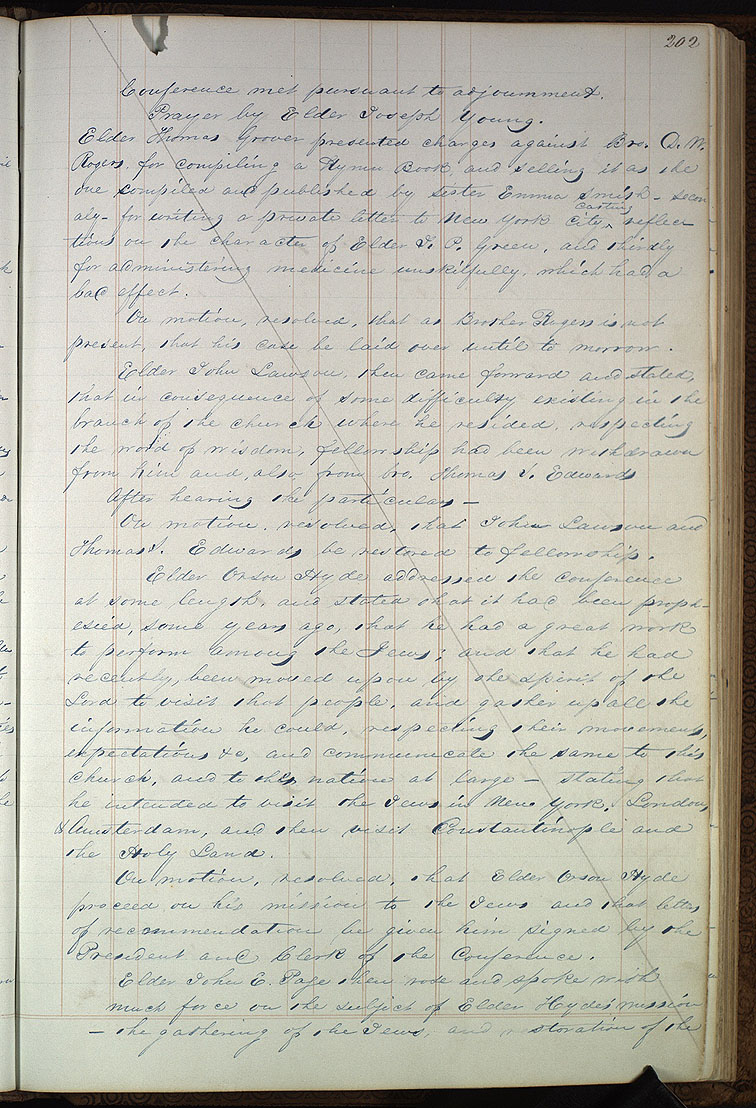 202
Conference met pursuant to adjournment.
Prayer by Elder Joseph Young.
Elder Thomas Grover presented charges against Bro. D. W.
Rogers, for compiling a Hymn Book, and selling it as the
one compiled and published by sister Emma Smith - secon
aly - for writing a private letter to New York City, ^casting reflec
tions on the character of Elder J. P. Green, and thirdly
for administering medicine unskilfully, which had a
bad effect.
On motion, resolved, that as Brother Rogers is not
present, that his case be laid over until to morrow.
Elder John Lawson, then came forward and stated,
that in consequence of some difficulty existing in the
branch of the church where he resided, respecting
the word of wisdom, fellowship had been withdrawn
from him and, also from bro. Thomas S. Edwards
After hearing the particulars -
On motion, resolved, that John Lawson and
Thomas S. Edwards be restored to fellowship.
Elder Orson Hyde addressed the conference
at some length, and stated that it had been proph-
esied, some years ago, that he had a great work
to perform among the Jews; and that he had
recently, been moved upon by the spirit of the
Lord to visit that people, and gather up all the
information he could, respecting their movements,
expectations &c, and communicate the same to this
church, and to this nation at large - stating that
he intended to visit the Jews in New York, London,
& Amsterdam, and then visit Constantinople and
the Holy Land.
On motion, resolved, that Elder Orson Hyde
proceed on his mission to the Jews and that letters
of recommendation be given him signed by the
President and Clerk of the Conference.
Elder John E. Page then rose and spoke with
much force on the subject of Elder Hydes mission
- the gathering of the Jews, and restoration of the